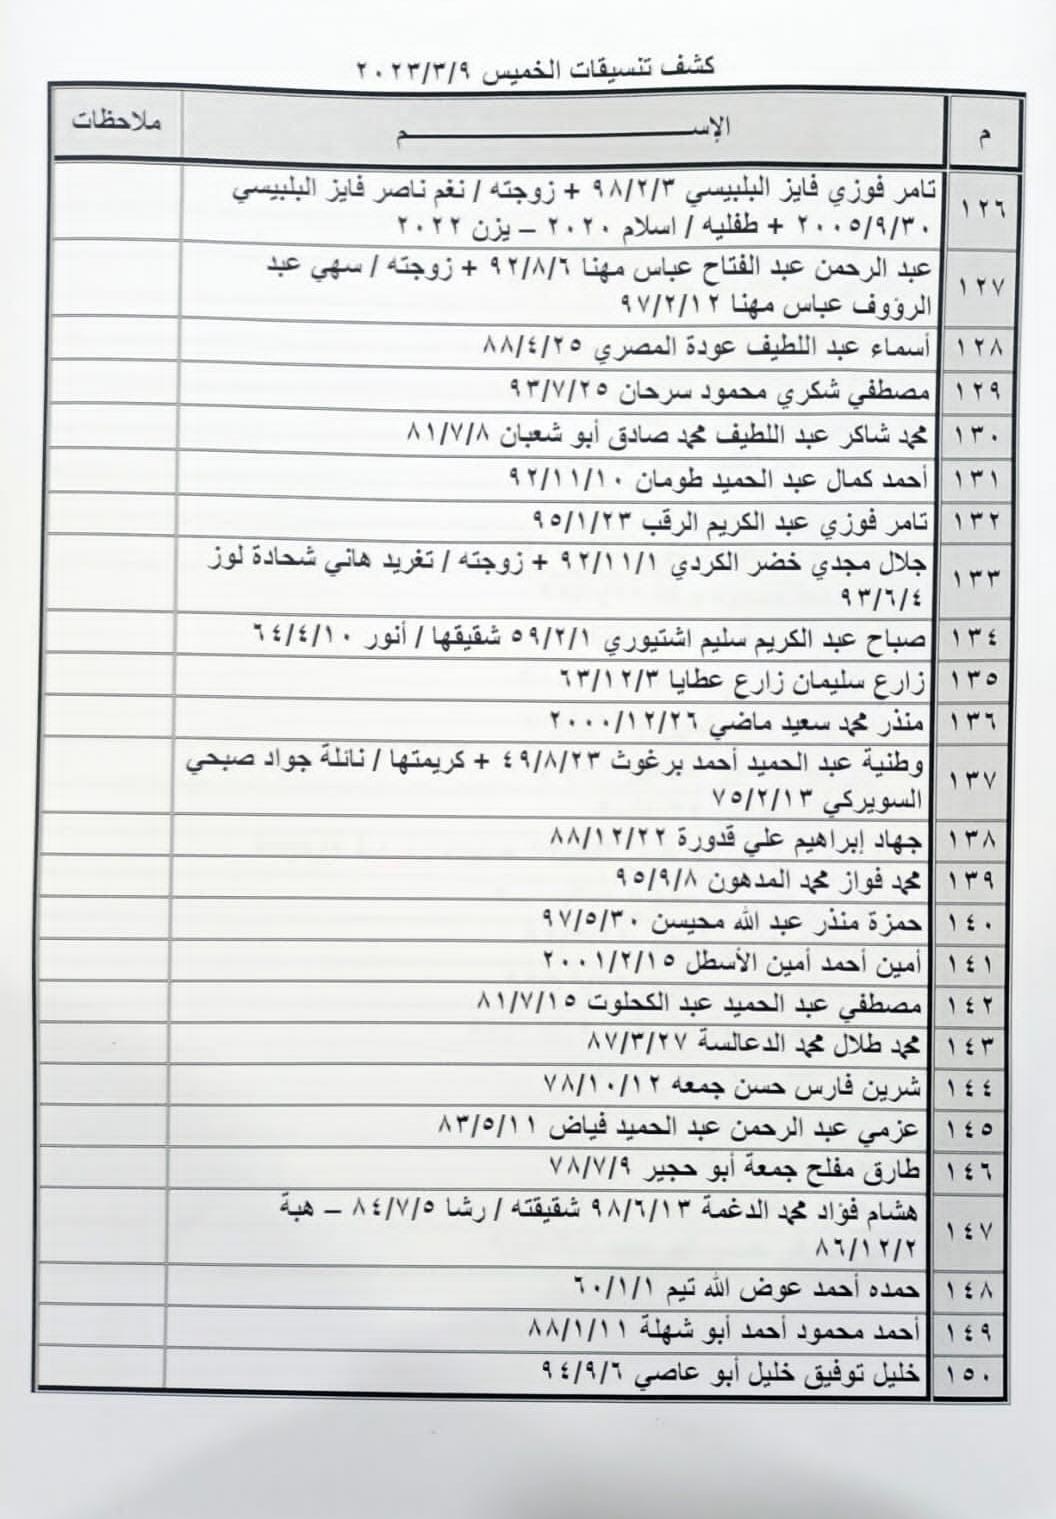 كشف تنسيقات الخميس ٢٠٢٣/٣/٩
م الإســـــــــــــــــــــــــــــــــــــم ملاحظات
١٢٦ تامر فوزي فايز البلبيسي ٩٨/٢/٣ + زوجته / نغم ناصر فايز البلبيسي
٢٠٠٥/٩/٣٠ + طفليه / اسلام ٢٠٢٠ – يزن ٢٠٢٢
١٢٧ عبد الرحمن عبد الفتاح عباس مهنا ٩٢/٨/٦ + زوجته / سهي عبد
الرؤوف عباس مهنا ٩٧/٢/١٢
١٢٨ أسماء عبد اللطيف عودة المصري ٨٨/٤/٢٥
١٢٩ مصطفي شكري محمود سرحان ٩٣/٧/٢٥
١٣٠ محمد شاكر عبد اللطيف محمد صادق أبو شعبان ٨١/٧/٨
١٣١ أحمد كمال عبد الحميد طومان ٩٢/١١/١٠
١٣٢ تامر فوزي عبد الكريم الرقب ٩٥/١/٢٣
١٣٣ جلال مجدي خضر الكردي ٩٢/١١/١ + زوجته / تغريد هاني شحادة لوز
٩٣/٦/٤
١٣٤ صباح عبد الكريم سليم اشتيوري ٥٩/٢/١ شقيقها / أنور ٦٤/٤/١٠
١٣٥ زارع سليمان زارع عطايا ٦٣/١٢/٣
١٣٦ منذر محمد سعيد ماضي ٢٠٠٠/١٢/٢٦
١٣٧ وطنية عبد الحميد أحمد برغوث ٤٩/٨/٢٣ + كريمتها / نائلة جواد صبحي
السويركي ٧٥/٢/١٣
١٣٨ جهاد إبراهيم علي قدورة ٨٨/١٢/٢٢
١٣٩ محمد فواز محمد المدهون ٩٥/٩/٨
١٤٠ حمزة منذر عبد الله محيسن ٩٧/٥/٣٠
١٤١ أمين أحمد أمين الأسطل ٢٠٠١/٢/١٥
١٤٢ مصطفي عبد الحميد عبد الكحلوت ٨١/٧/١٥
١٤٣ محمد طلال محمد الدعالسة ٨٧/٣/٢٧
١٤٤ شرين فارس حسن جمعه ٧٨/١٠/١٢
١٤٥ عزمي عبد الرحمن عبد الحميد فياض ٨٣/٥/١١
١٤٦ طارق مفلح جمعة أبو حجير ٧٨/٧/٩
١٤٧ هشام فؤاد محمد الدغمة ٩٨/٦/١٣ شقيقته / رشا ٨٤/٧/٥ – هبة
٨٦/١٢/٢
١٤٨ حمده أحمد عوض الله تيم ٦٠/١/١
١٤٩ أحمد محمود أحمد أبو شهلة ٨٨/١/١١
١٥٠ خليل توفيق خليل أبو عاصي ٩٤/٩/٦